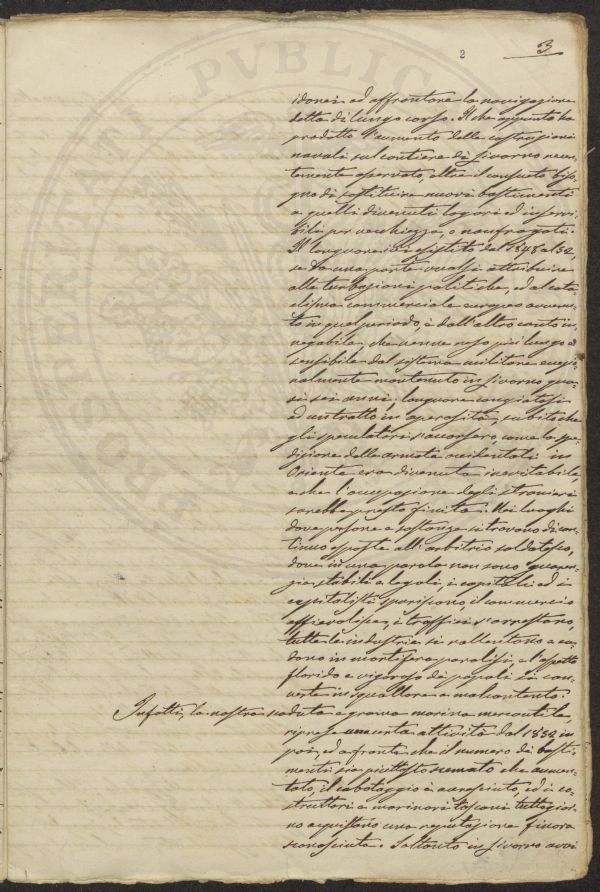 2 3
idonei ad affrontare la navigazione
detta di lungo corso. Il che appunto ha
prodotto l'aumento delle costruzioni
navali sul cantiere di Livorno recen-
temente osservato, oltre il consueto biso-
gno di sostituire nuovi bastimenti
a quelli divenuti logori ed inservi-
bili per vecchiezza, o naufragati.
Il languore ivi esistito dal 1848 al 52,
se da una parte vuolsi attribuire
alle turbazioni politiche, ed al cata-
clisma commerciale europeo avvenu-
to in quel periodo, è dall'altro canto in-
negabile, che venne reso più lungo e
sensibile dal sistema militare
mantenuto in Livorno qua-
si sei anni; languore cangiatosi
ad un tratto in operosità, subito che
gli speculatori s'accorsero, come la spe-
dizione delle armate occidentali in
Oriente era divenuta inevitabile,
e che l'occupazione degli stranieri
sarebbe presto finita. Nei luoghi
dove persone e sostanze si trovano di con-
tinuo esposte all'arbitrio soldatesco,
dove in una parola non sono guaren-
gie stabili e legali, i capitali ed i
capitalisti spariscono, il commercio
affievolisce, i traffici s'arrestano,
tutte le industrie si rallentano o ca-
dono in mortifera paralisi, e l'aspetto
florido e vigoroso dei popoli si con-
verte in squallore e malcontento.
Infatti, la nostra seduta e grama marina mercantile,
riprese una certa attività dal 1852 in
poi, ed a fronte che il numero dei basti-
menti sia piuttosto scemato che aumen-
tato, il cabotaggio è accresciuto, ed i co-
struttori e marinari toscani tuttogior-
no acquistano una reputazione finora
sconosciuta. Soltanto in Livorno avvi